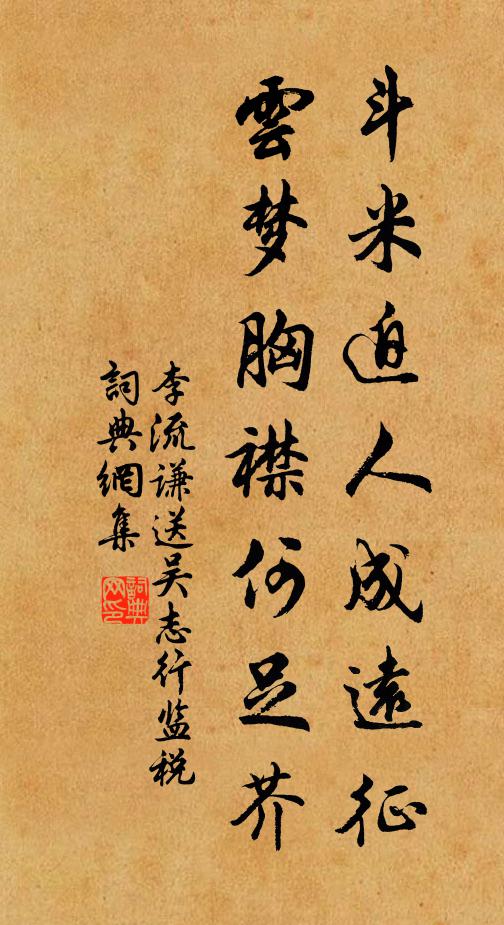 斗米迫人成遠征
雲梦胸襟何足芥
李流谦送吴志行监税
詞典網集
詞典
网印